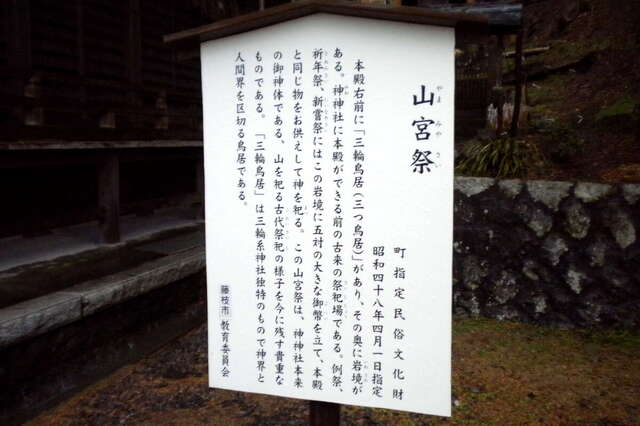 山宮祭
やま みや さい
町指定民俗文化財
昭和四十八年四月一日指定
本殿右前に「三輪鳥居(三つ鳥居)」があり、その奥に岩境が
ある。神神社に本殿ができる前の古来の祭祀場である。例祭、
祈年祭、新嘗祭にはこの岩境に五対の大きな御幣を立て、本殿
と同じ物をお供えして神を祀る。この山宮祭は、神神社本来
の御神体である、山を祀る古代祭祀の様子を今に残す貴重な
ものである。「三輪鳥居」は三輪系神社独特のもので神界と
人間界を区切る鳥居である。
藤枝市教育委員会